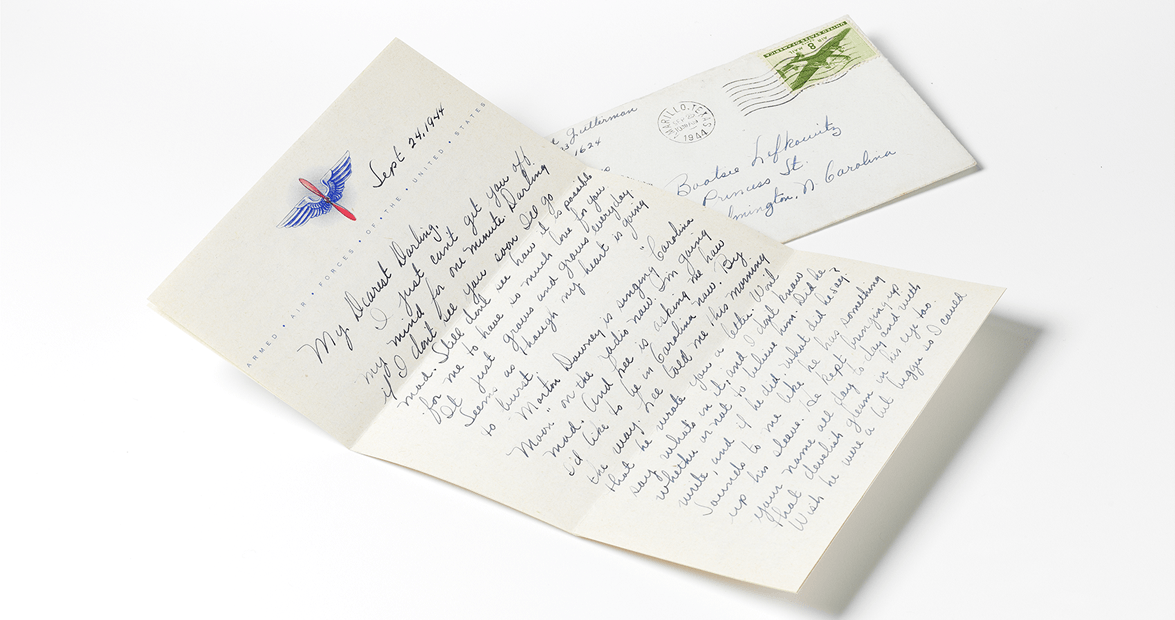 Sept 24, 1944
ARMED • AIR • FORCES • OF • THE • UNITED • STATES
My Dearest Darling,
I just can't get you off
my mind for one minute. Darling
if I don't see you soon I'll go
mad. Still don't see how it is possible
for me to have so much love for you
It just grows and grows everyday
Seems as though my heart is going
to burst.
Morton Downey is singing "Carolina
Moon" on the radio now. I'm going
mad. And Lee is asking me how
I'd like to be in Carolina now. By
the way. Lee told me this morning
that he wrote you a letter. Wont
say whats in it, and I don't know
whether or not to believe him. Did he
write, and if he did. what did he say?
Sounds to me like he has something
up his sleave. He kept bringing up
your name all day to-day and with
that develish gleam in his eye too.
Wish he were a bit bigger so I could
1624
AMARILLO, TEXAS
1944
UNITED STATES OF AMERICA
AIR MAIL
8¢
Bootsie Lefkowitz
Princess St.
lmington, N. Carolina